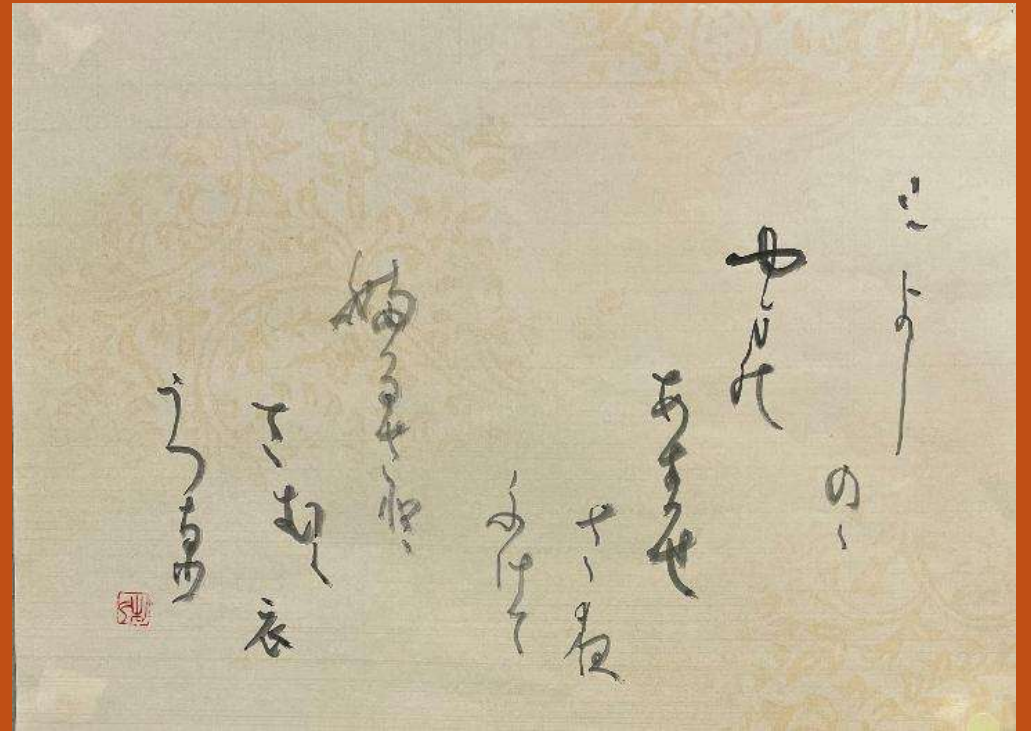 みよし
のゝ
やまの
あきかせ
さ夜
ふけて
ふるさと
さむく
衣
うつなり